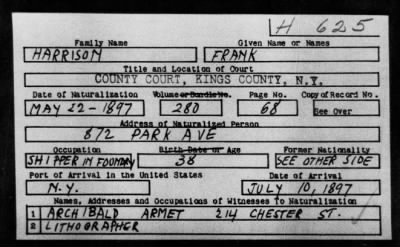 H 625
Family Name Given Name or Names
HARRISON FRANK
Title and Location of Court
COUNTY COURT, KINGS COUNTY, N.Y.
Date of Naturalization Volume or Bundle No. Page No. Copy of Record No.
MAY 22-1897 280 68 See Over
Address of Naturalized Person
872 PARK AVE
Occupation Birth Date or Age Former Nationality
SHIPPER IN FOUNDRY 38 SEE OTHER SIDE
Port of Arrival in the United States Date of Arrival
N.Y. JULY 10, 1897
Names, Addresses and Occupations of Witnesses to Naturalization
1 ARCHIBALD ARMET 214 CHESTER ST.
2 LITHOGRAPHER